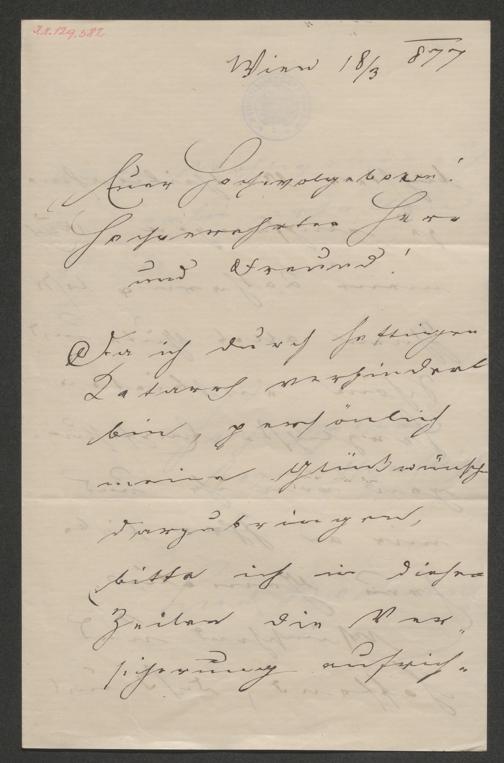 22.129.582
Wien 18/3 877
Euer Hochwolgeboren!
Hochverehrter Herr
und Freund!
Da ich durch heftigen
Katarrh verhindert
bin, persönlich
meine Glückwünsche
darzubringen,
bitte ich in diesen
Zeilen die Ver-
sicherung aufrich-